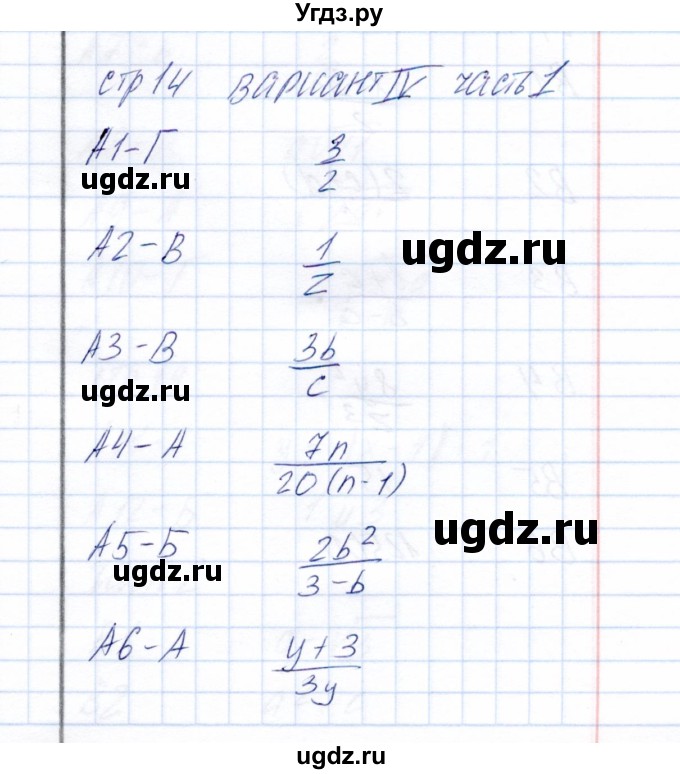 Угдз.ру
стр 14 вариант IV часть 1
А1-Г 3/2
ugdz.ru
А2-В 1/z
ugdz.ru
А3-В 3b/c
ugdz.ru
А4-А 7n/20(n-1)
ugdz.ru
А5-Б 2b²/3-b
ugdz.ru
А6-А y+3/3y
ugdz.ru